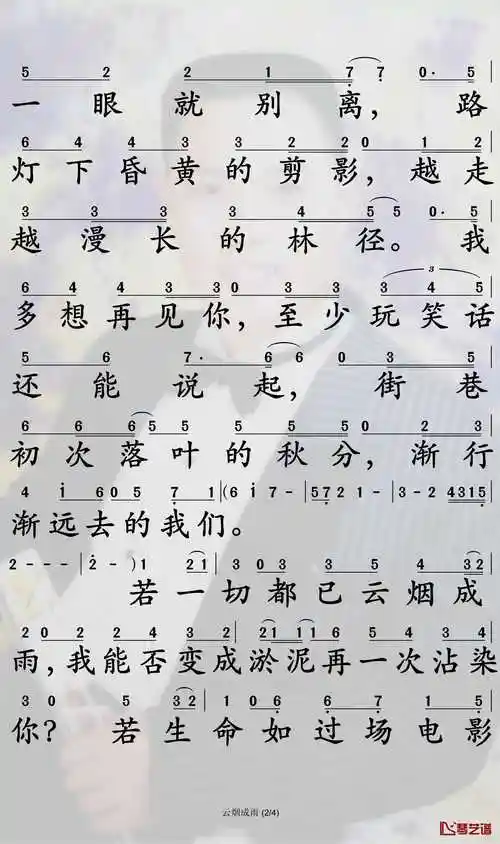 5 2 2 1 7 7 0· 5
一眼就别离，路
6 4 4 3 3 2 2 0 1 2
灯下昏黄的剪影，越走
3 3 3 3 4 5 5 0· 5
越漫长的林径。我
6 4 4 3 3 0 3 3 3 4 5
多想再见你，至少玩笑话
5 6 7· 6 6 0 3 5
还能说起，街巷
6 6 6 5 0 5 6 5 0 2 3
初次落叶的秋分，渐行
4 i 6 0 5 7 1 (6 i 7- 5 7 2 1- 3- 2 4315
渐远去的我们。
2--- 2- -)1 2 1 3 0 3 3 5 4 3 2
若一切都已云烟成
2 0 2 2 4 3 2 2 1 1 1 6 5 4 3 4
雨，我能否变成淤泥再一次沾染
3 0 5 3 2 1 0 6 6 7 1 5
你？若生命如过场电影
云烟成雨 (2/4)
琴艺谱